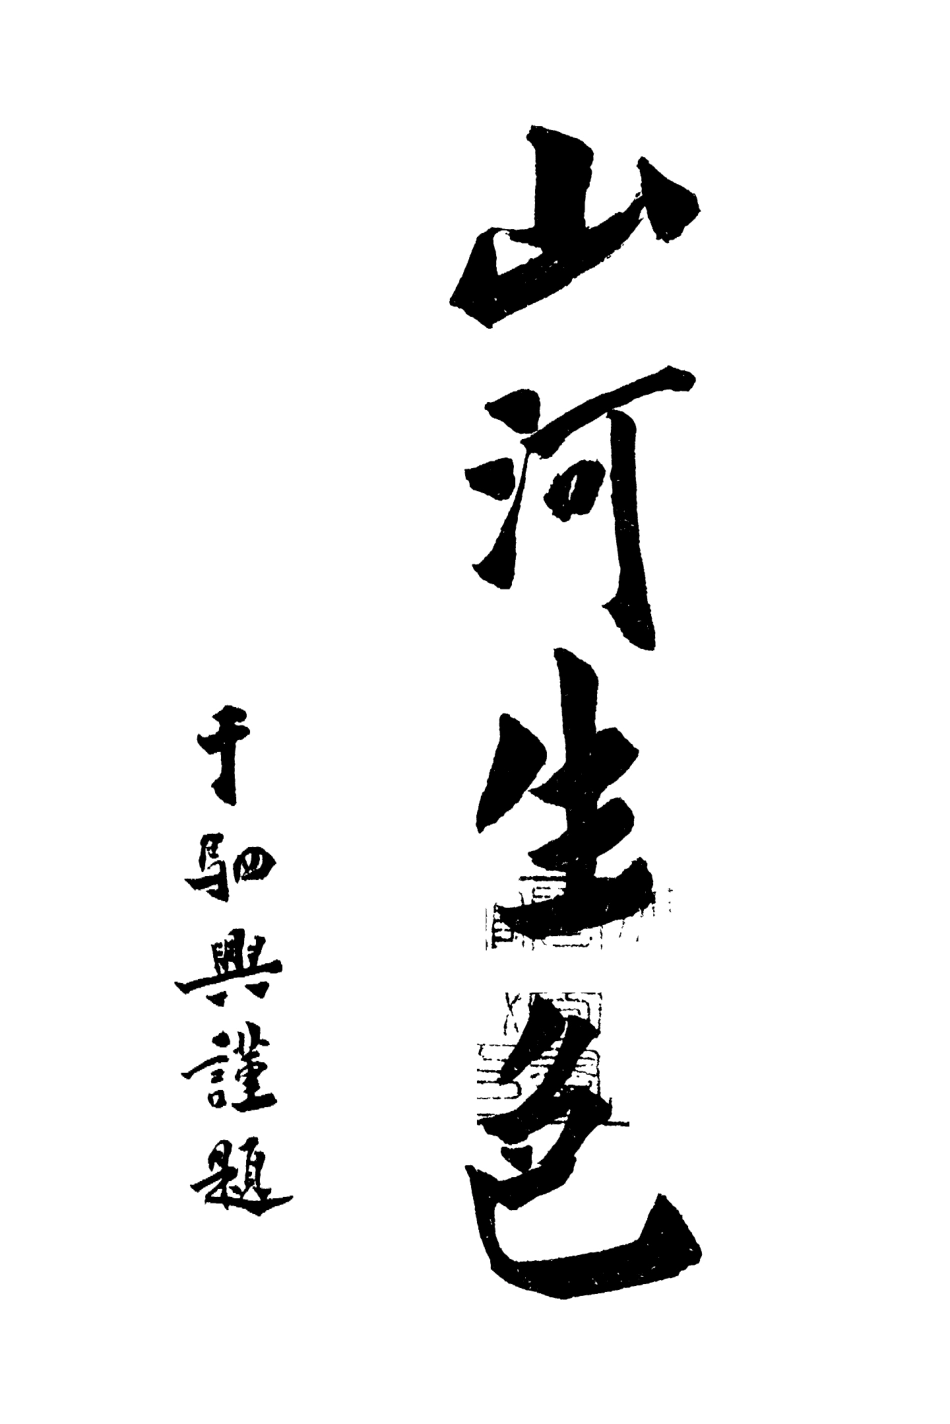 山河生色
于駟興謹題